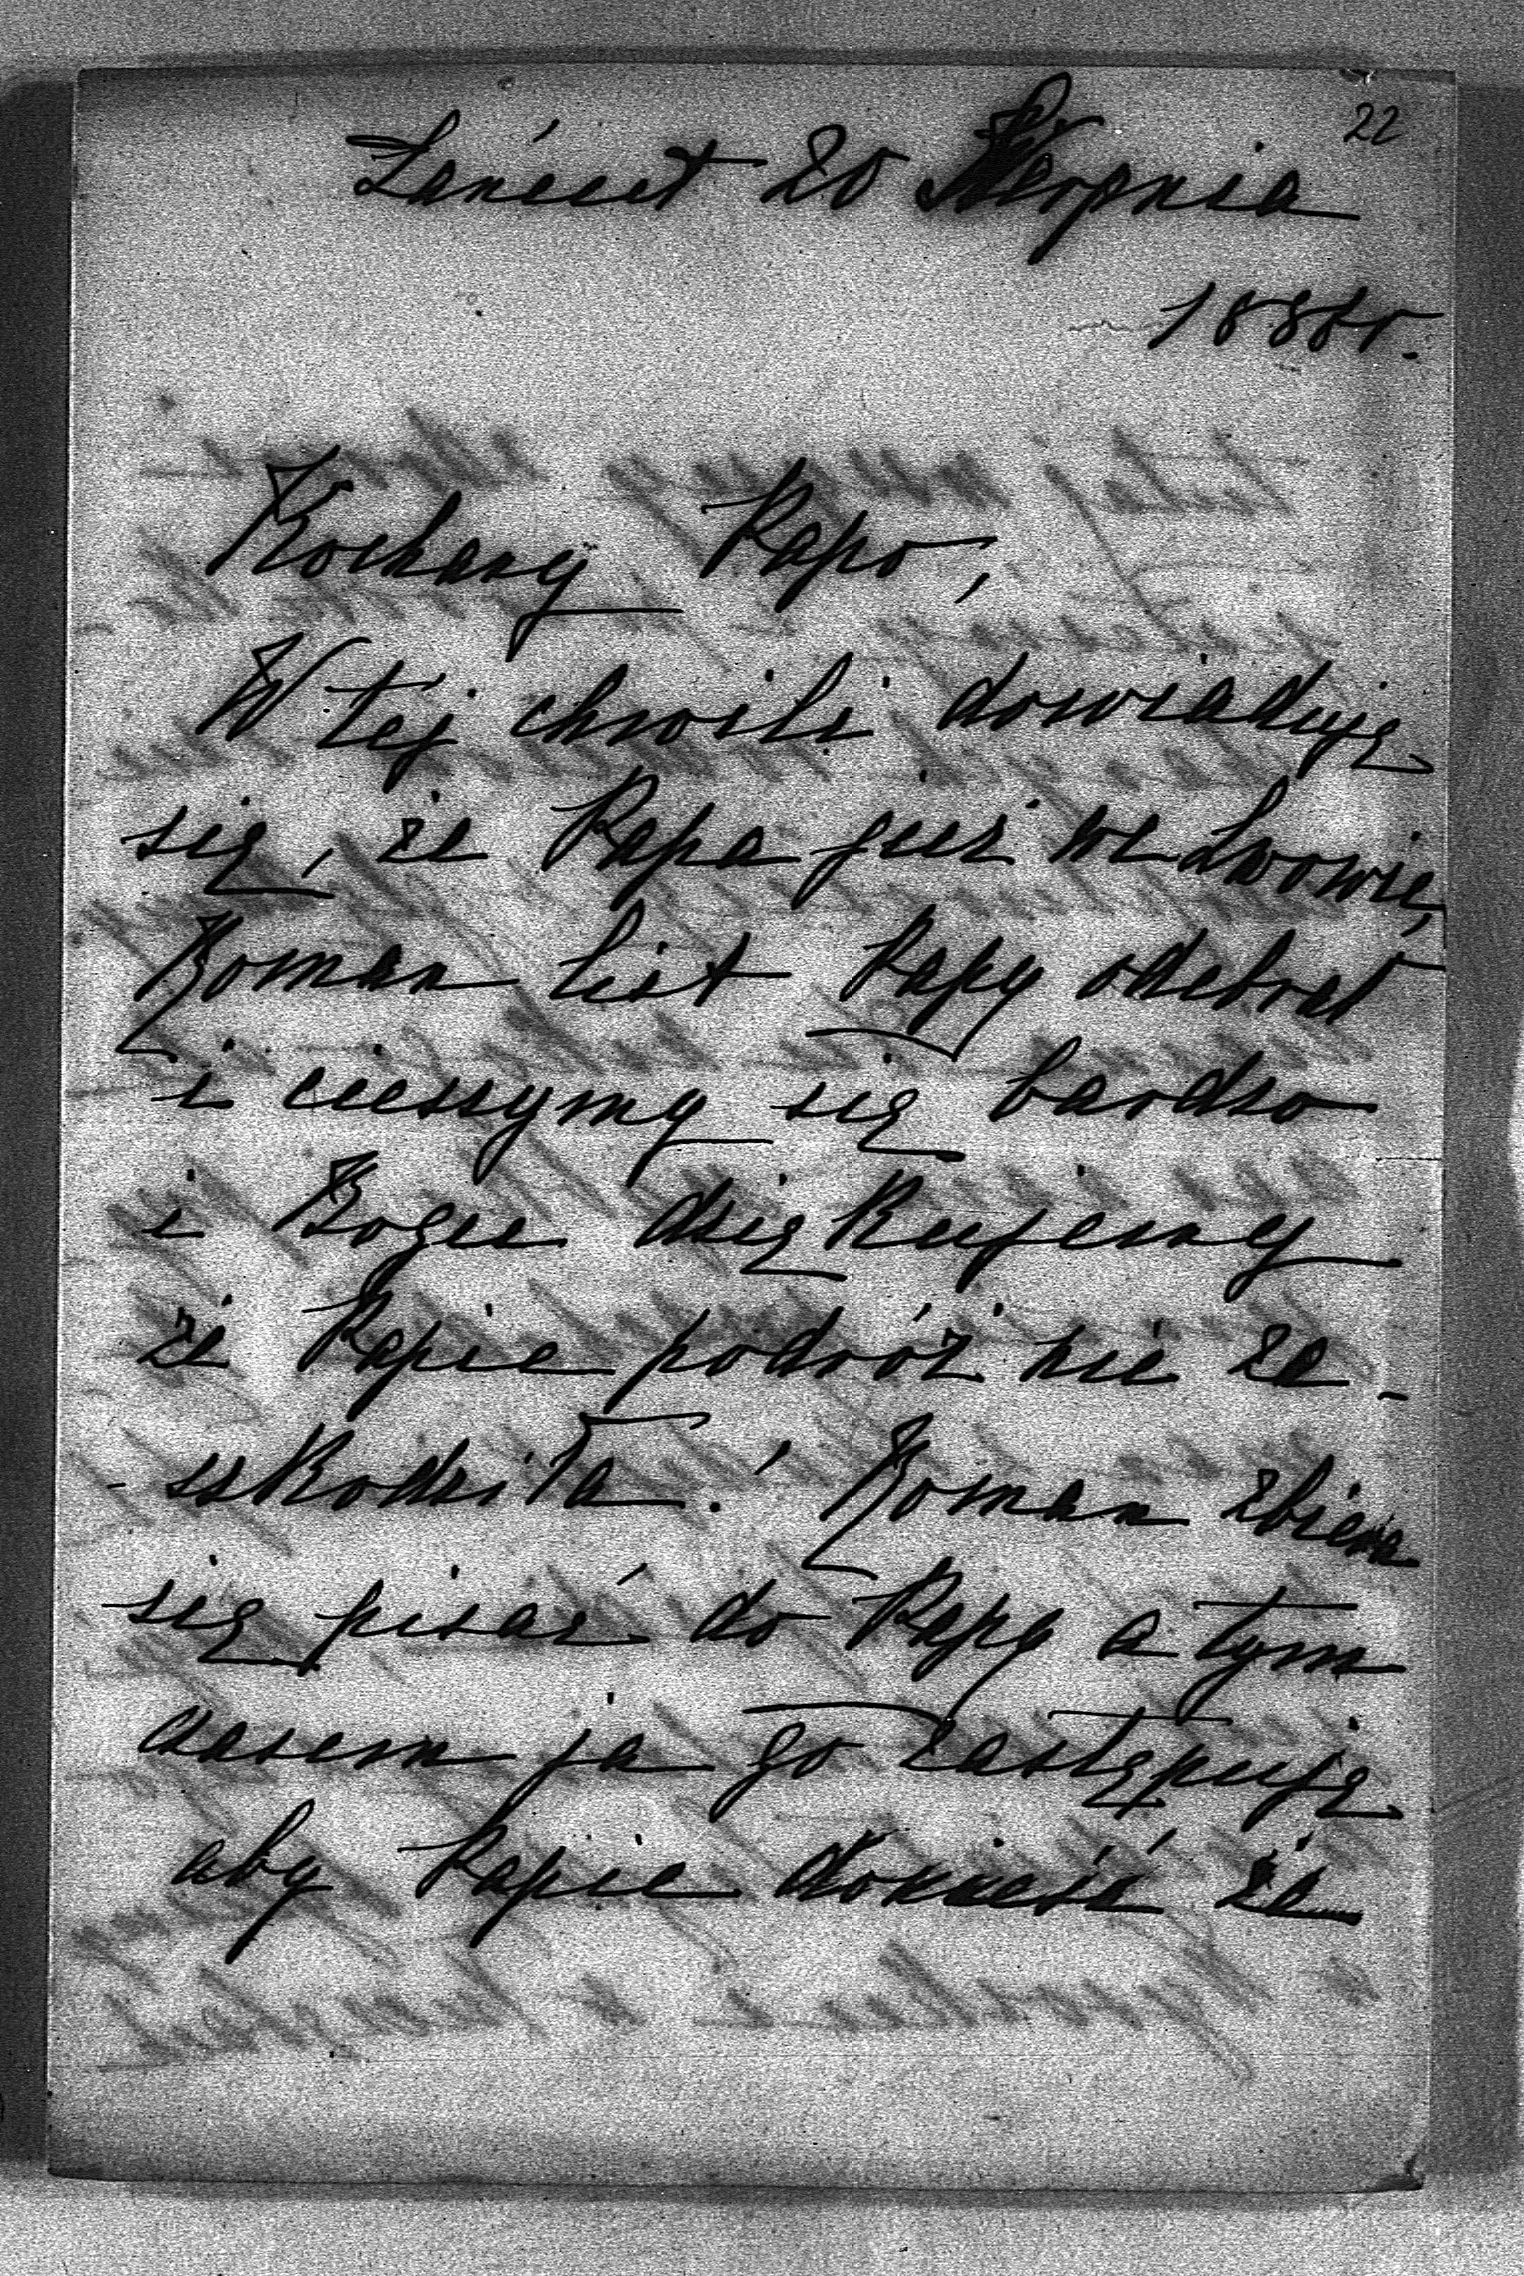 22
Łańcut 20 Sierpnia
188 r.
Kochany Papo,
W tej chwili dowiaduję
się, że Papa już we Lwowie,
Roman list Papy odebrał
i cieszymy się bardzo
i Bogu dziękujemy
że Papie podróż nie za-
-szkodziła! Roman zbiera
się pisać do Papy a tym
czasem ja go zastępuję
aby Papie donieść że